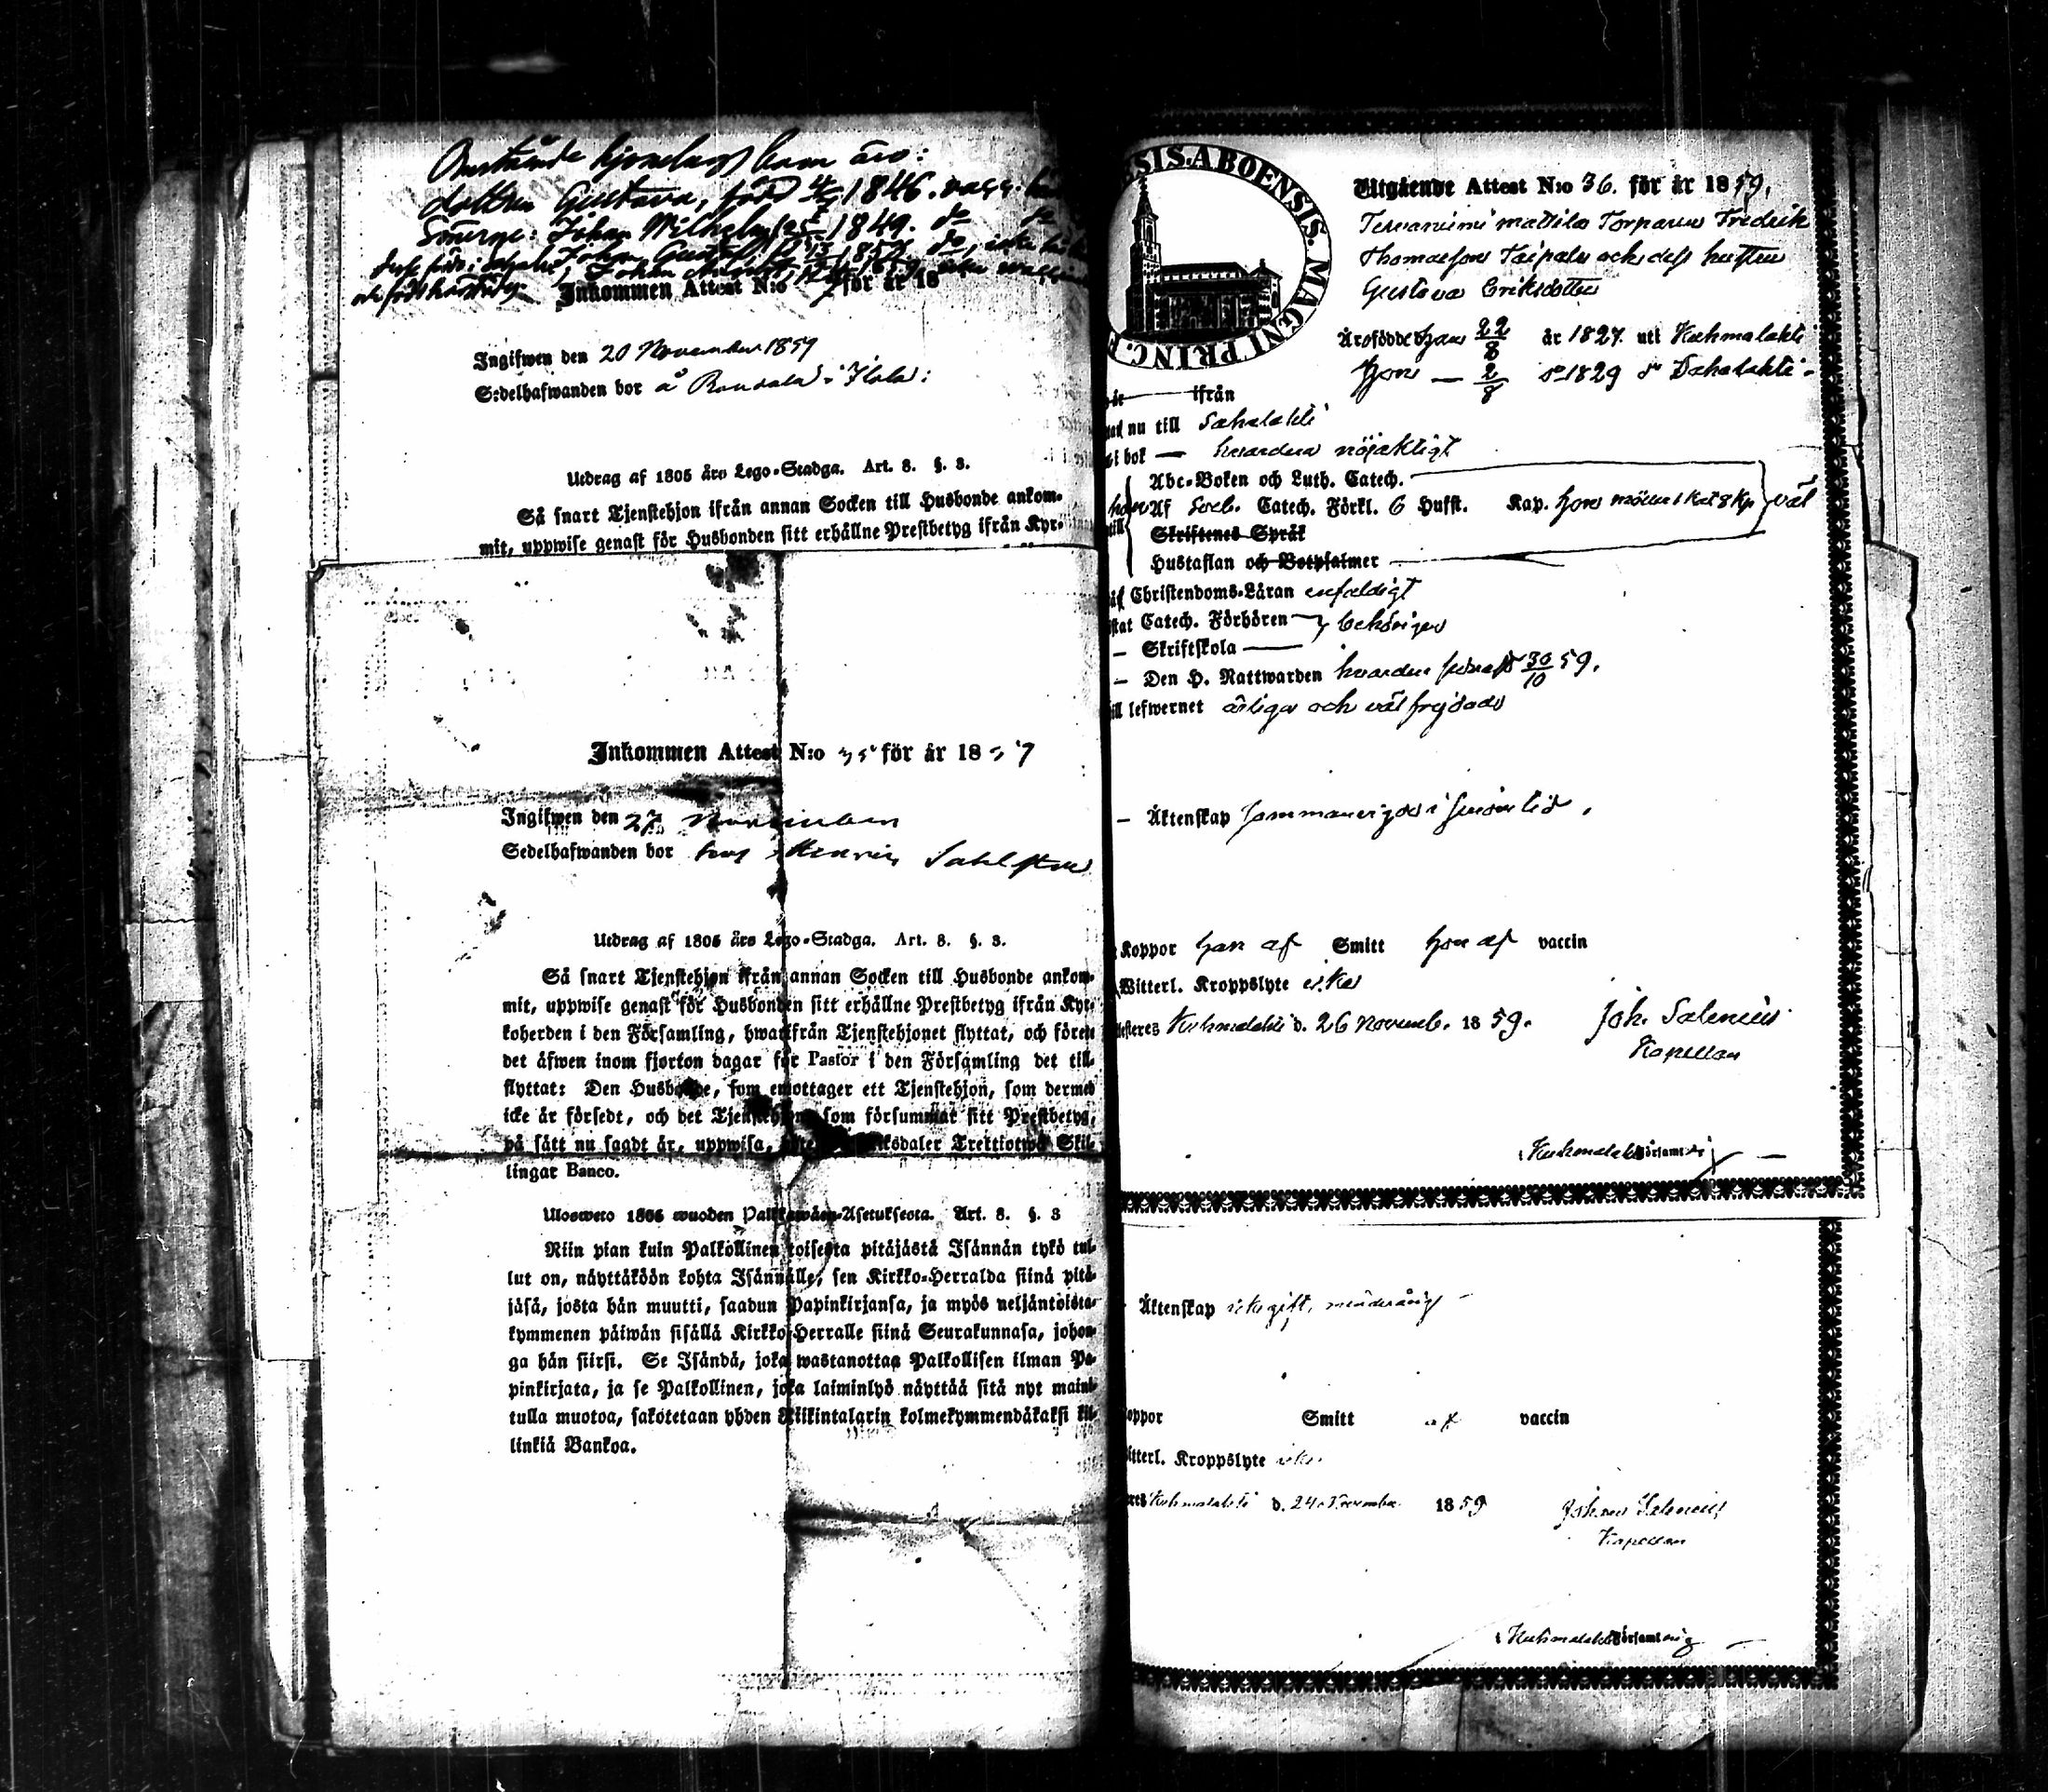 dottren Gustava, född 1846.
Sönerne: Johan Wilhelm 1849. do
Inkommen Attest N:o för år 18
Ingifwen den 20 November 1859
Sedelhafwanden bor å
Utdrag af 1805 års Lego-Stadga. Art. 8. §. 3.
Så snart Tjenstehjon ifrån annan Socken till Husbonde ankom-
mit, uppwise genast för Husbonden sitt erhållne Prestbetyg ifrån Kyr-
Inkommen Attest N:o 35 för år 18
Ingifwen den 27 November
Sedelhafwanden bor
Utdrag af 1805 års Lego-Stadga. Art. 8. §. 3.
Så snart Tjenstehjon ifrån annan Socken till Husbonde ankom-
mit, uppwise genast för Husbonden sitt erhållne Prestbetyg ifrån Kyr-
koherden i den Församling, hwarifrån Tjenstehjonet flyttat, och förete
det äfwen inom fjorton dagar för Pastor i den Församling det till-
flyttat: Den Husbonde, som emottager ett Tjenstehjon, som dermed
icke är försedt, och det Tjenstehjon, som försummar sitt Prestbetyg,
på sätt nu sagdt är, uppwisa, Riksdaler Trettiotwå Skil-
lingar Banco.
Ulosweto 1805 wuoden Palkkawäen-Asetuksesta. Art. 8. §. 3
Niin pian kuin Palkollinen toisesta pitäjästä Isännän tykö tul-
lut on, näyttäköön kohta Isännälle, sen Kirkko-Herralda siinä pitä-
jäsä, josta hän muutti, saadun Papinkirjansa, ja myös neljäntoista-
kymmenen päiwän sisällä Kirkko-Herralle siinä Seurakunnasa, johon-
ga hän siirsi. Se Isändä, joka wastanottaa Palkollisen ilman Pa-
pinkirjata, ja se Palkollinen, joka laiminlyö näyttää sitä nyt maini-
tulla muotoa, sakotetaan yhden Riikintalarin kolmekymmendäkaksi kil-
linkiä Bankoa.
SIS. ABOENSIS. MAGNI PRINC. F
Utgående Attest N:o 36. för år 1859.
Torparen Fredrik
Thomasson Taipale och dess hustru
Gustava Eriksdotter
Äro födde Han 22/8 år 1827. uti Kuhmalahti
Hon — 2/8 do 1829 do Sahalahti
ifrån
nu till Sahalahti
i bok — hvardera nöjaktigt
Abc-Boken och Luth. Catech.
Af Sveb. Catech. Förkl. 6 Hufst. Kap. väl
Skriftenes Språk
Hustaflan och Botpsalmer
Christendoms-Läran enfaldigt
Catech. Förhören behörigen
— Skriftskola
— Den H. Nattwarden hvardera senast 30/10 59.
ill lefwernet ärliga och väl frejdade
— Äktenskap sammanvigde i sinom tid.
Koppor han af Smitt hon af vaccin
Witterl. Kroppslyte icke
Kuhmalahti d. 26 Novemb. 1859.
Joh. Salenius
Kapellan
i Kuhmalahti Församling
Äktenskap icke gift, minderårig
oppor Smitt af vaccin
itterl. Kroppslyte icke
Kuhmalahti d. 24 November 1859
Johan Salenius
Kapellan
i Kuhmalahti Församling